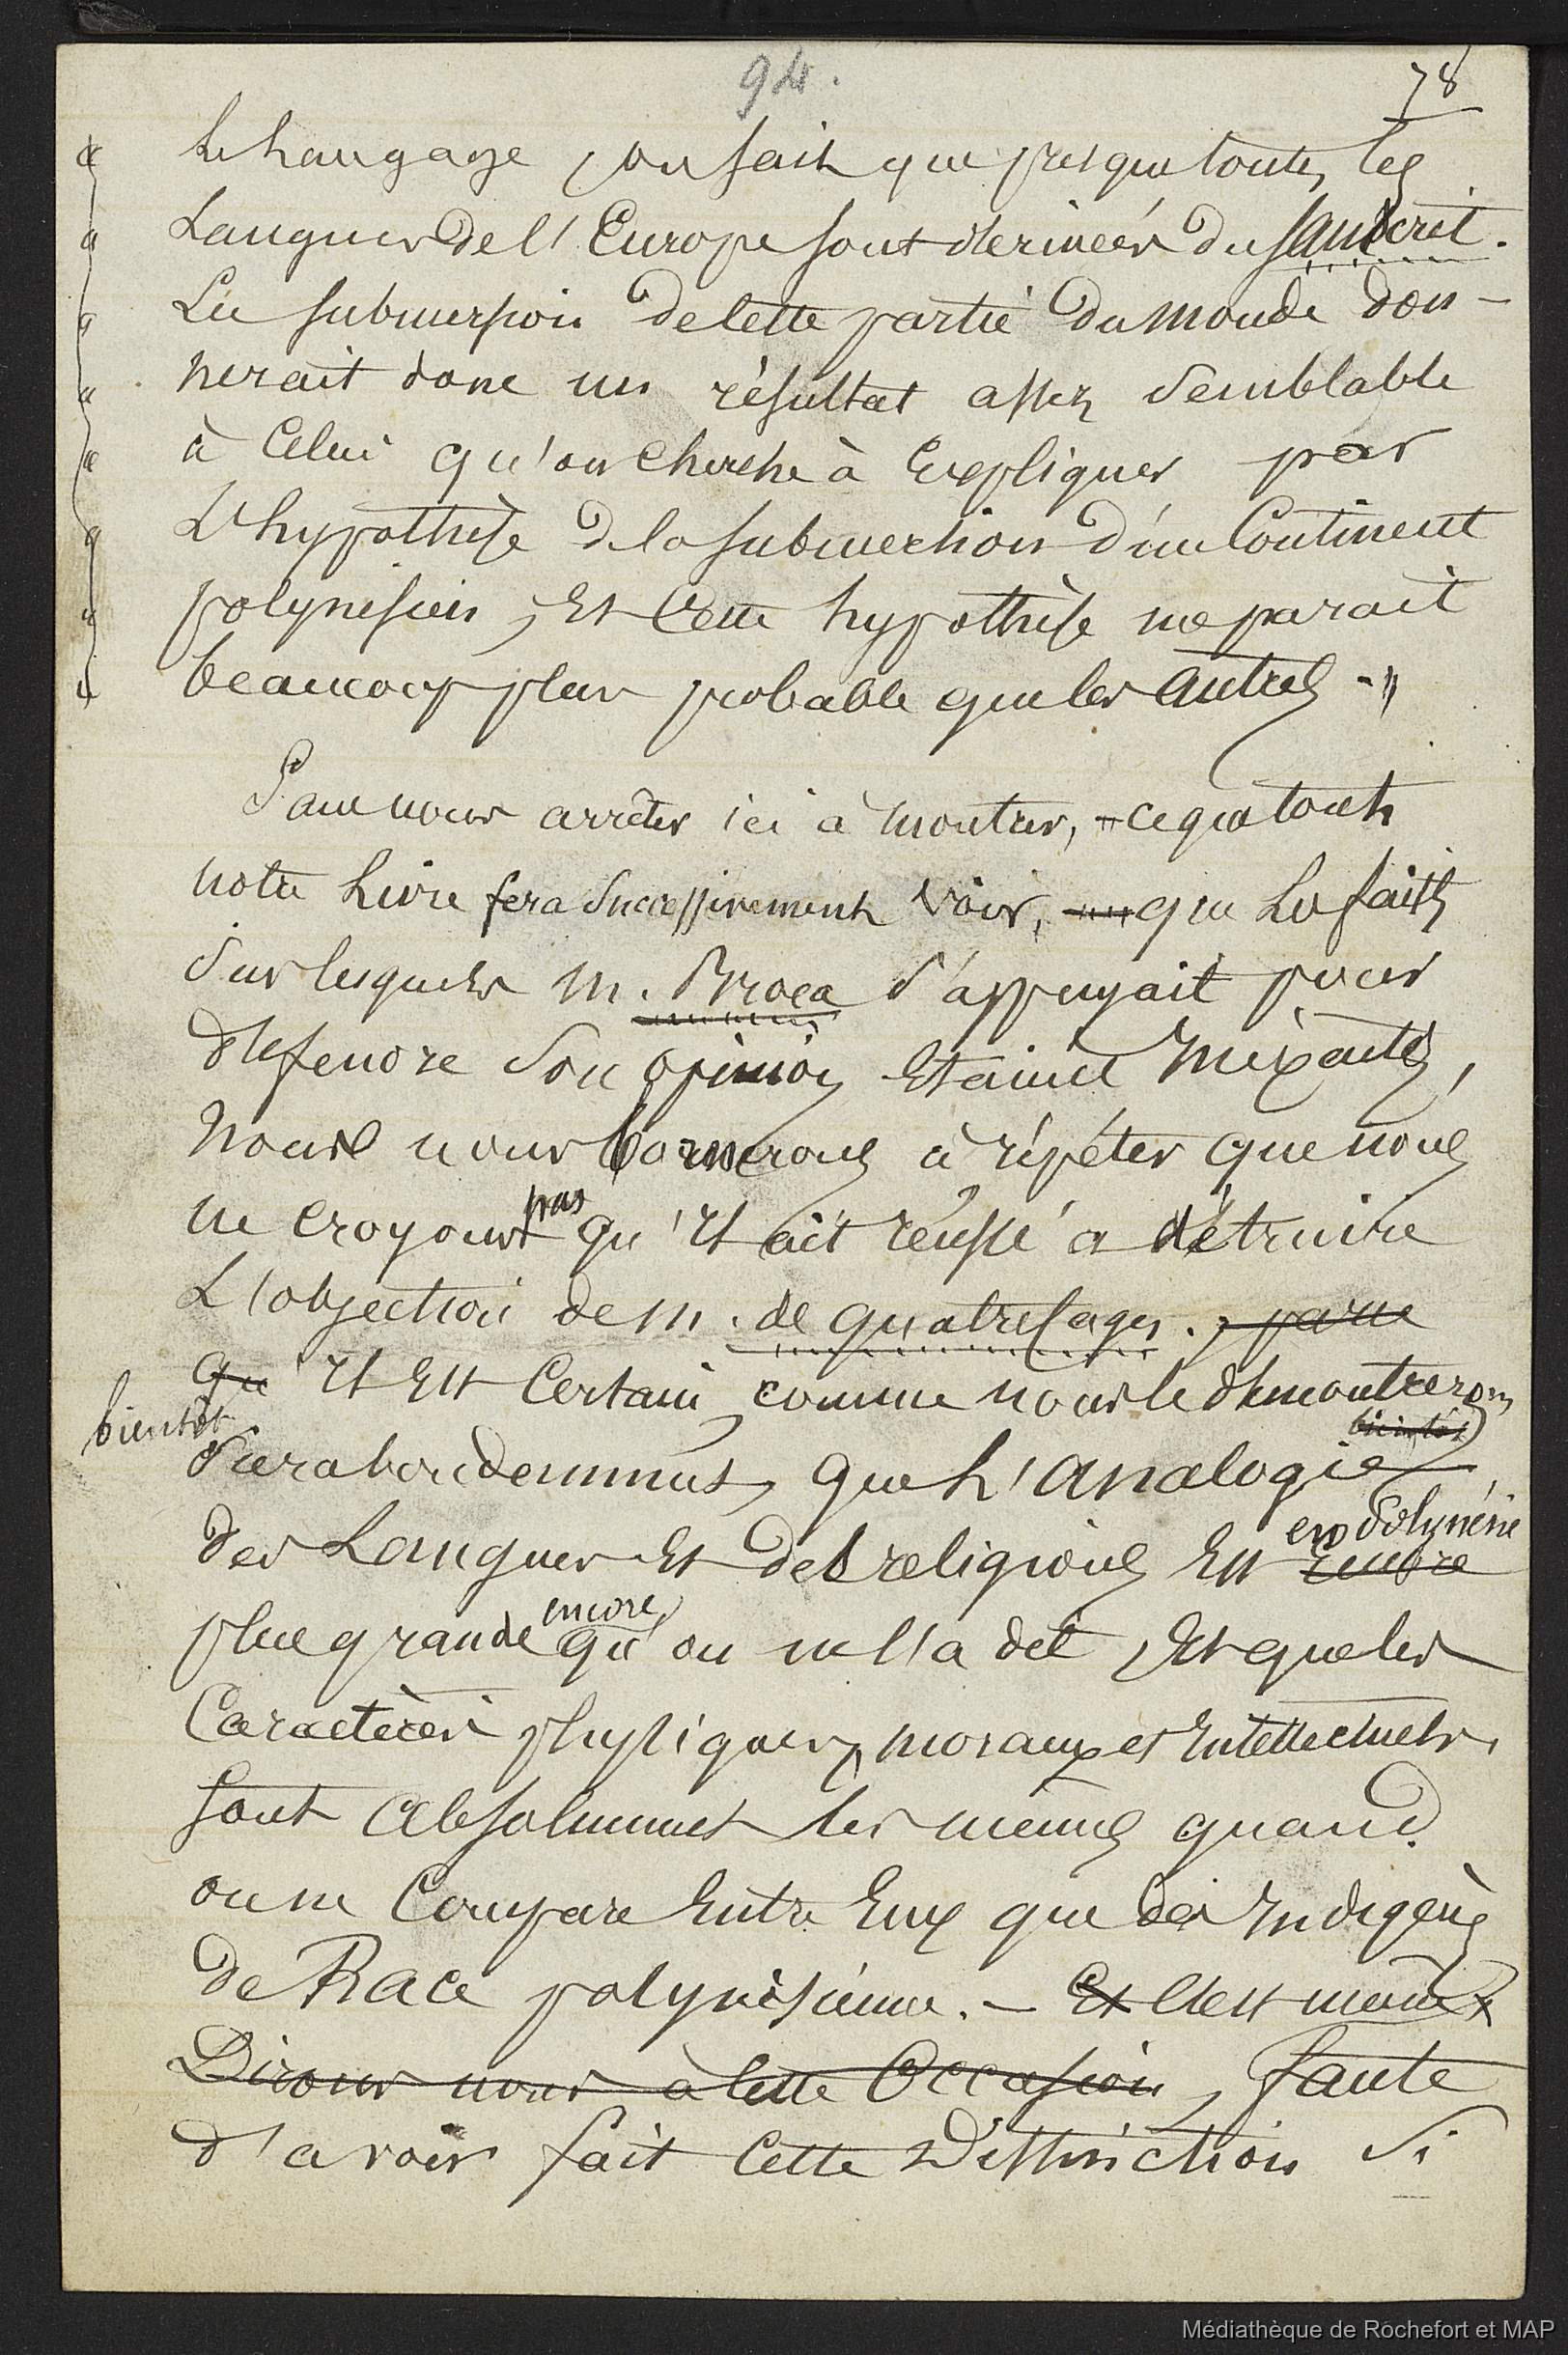 94.
78
le Langage, on sait que presque toutes les
Langues de l'Europe sont dérivées du sanscrit.
La submersion de cette partie du monde don-
nerait donc un résultat assez semblable
à celui qu'on cherche à Expliquer par
L'hypothèse de la submersion d'un Continent
polynésien, Et Cette hypothèse me parait
beaucoup plus probable que les autres."
Sans nous arrêter ici à montrer, ce que tout
notre Livre fera successivement voir, que les faits
sur lesquels M. Broca s'appuyait pour
défendre son opinion Etaient inexacts,
Nous nous bornerons à répéter que nous
ne croyons pas qu'il ait réussi à détruire
L'objection de M. de quatrefages. ; parce
qu'il Est Certain, comme nous le démontrerons
bientôt
bientôt
surabondemment, que L'analogie
des Langues Et des religions Est encore en Polynésie
plus grande encore qu'on ne l'a dit, Et que les
Caractères physiques, moraux et Intellectuels,
sont absolument les mêmes quand
on ne Compare Entre Eux que des Indigènes
de Race polynésienne. — Et C'est même
Dirons nous à cette Occasion, faute
d'avoir fait Cette Distinction si
Médiathèque de Rochefort et MAP